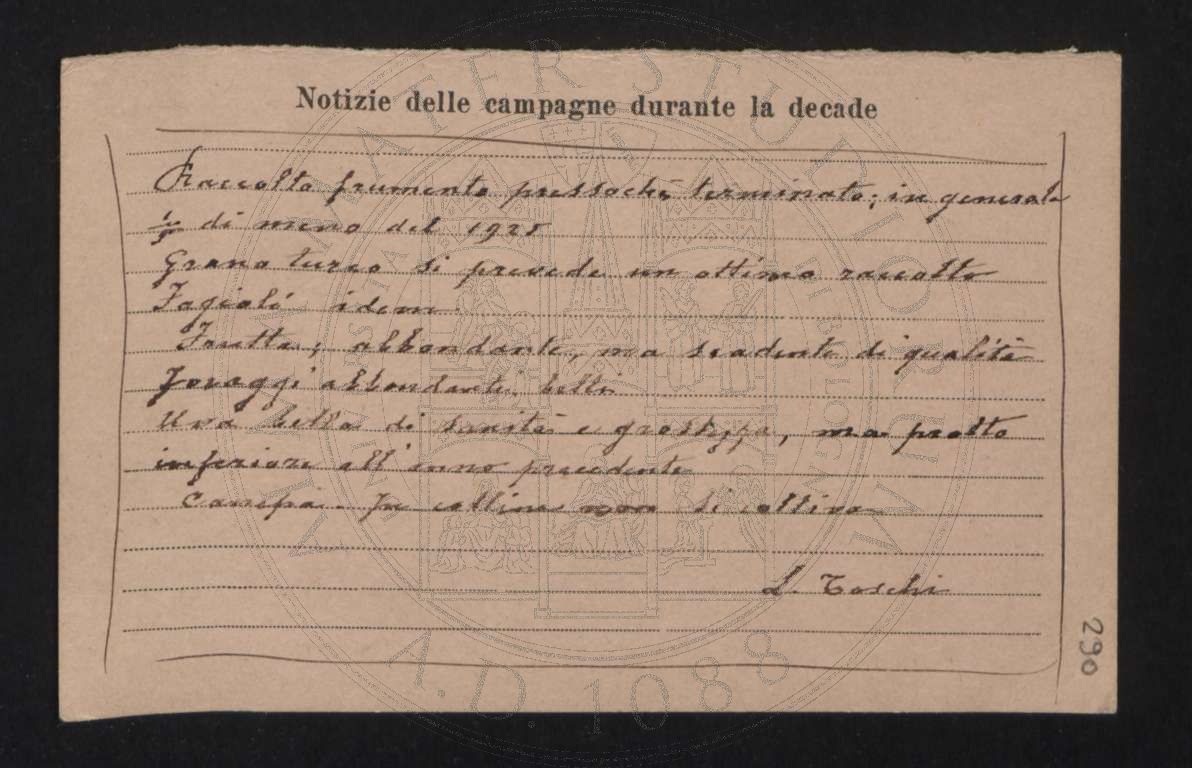 Notizie delle campagne durante la decade
Raccolto frumento pressochè terminato; in generale
di meno del 1925
Grano turco si prevede un ottimo raccolto
Fagioli idem
Frutta; abbondante, ma scadente di qualità
Foraggi abbondanti, belli
Uva bella di sanità e grossezza, ma prodto
inferiore all'anno precedente
Canepa. In collina non si coltiva
L. Toschi
290
ALMA MATER STUDIORUM
A.D. 1088